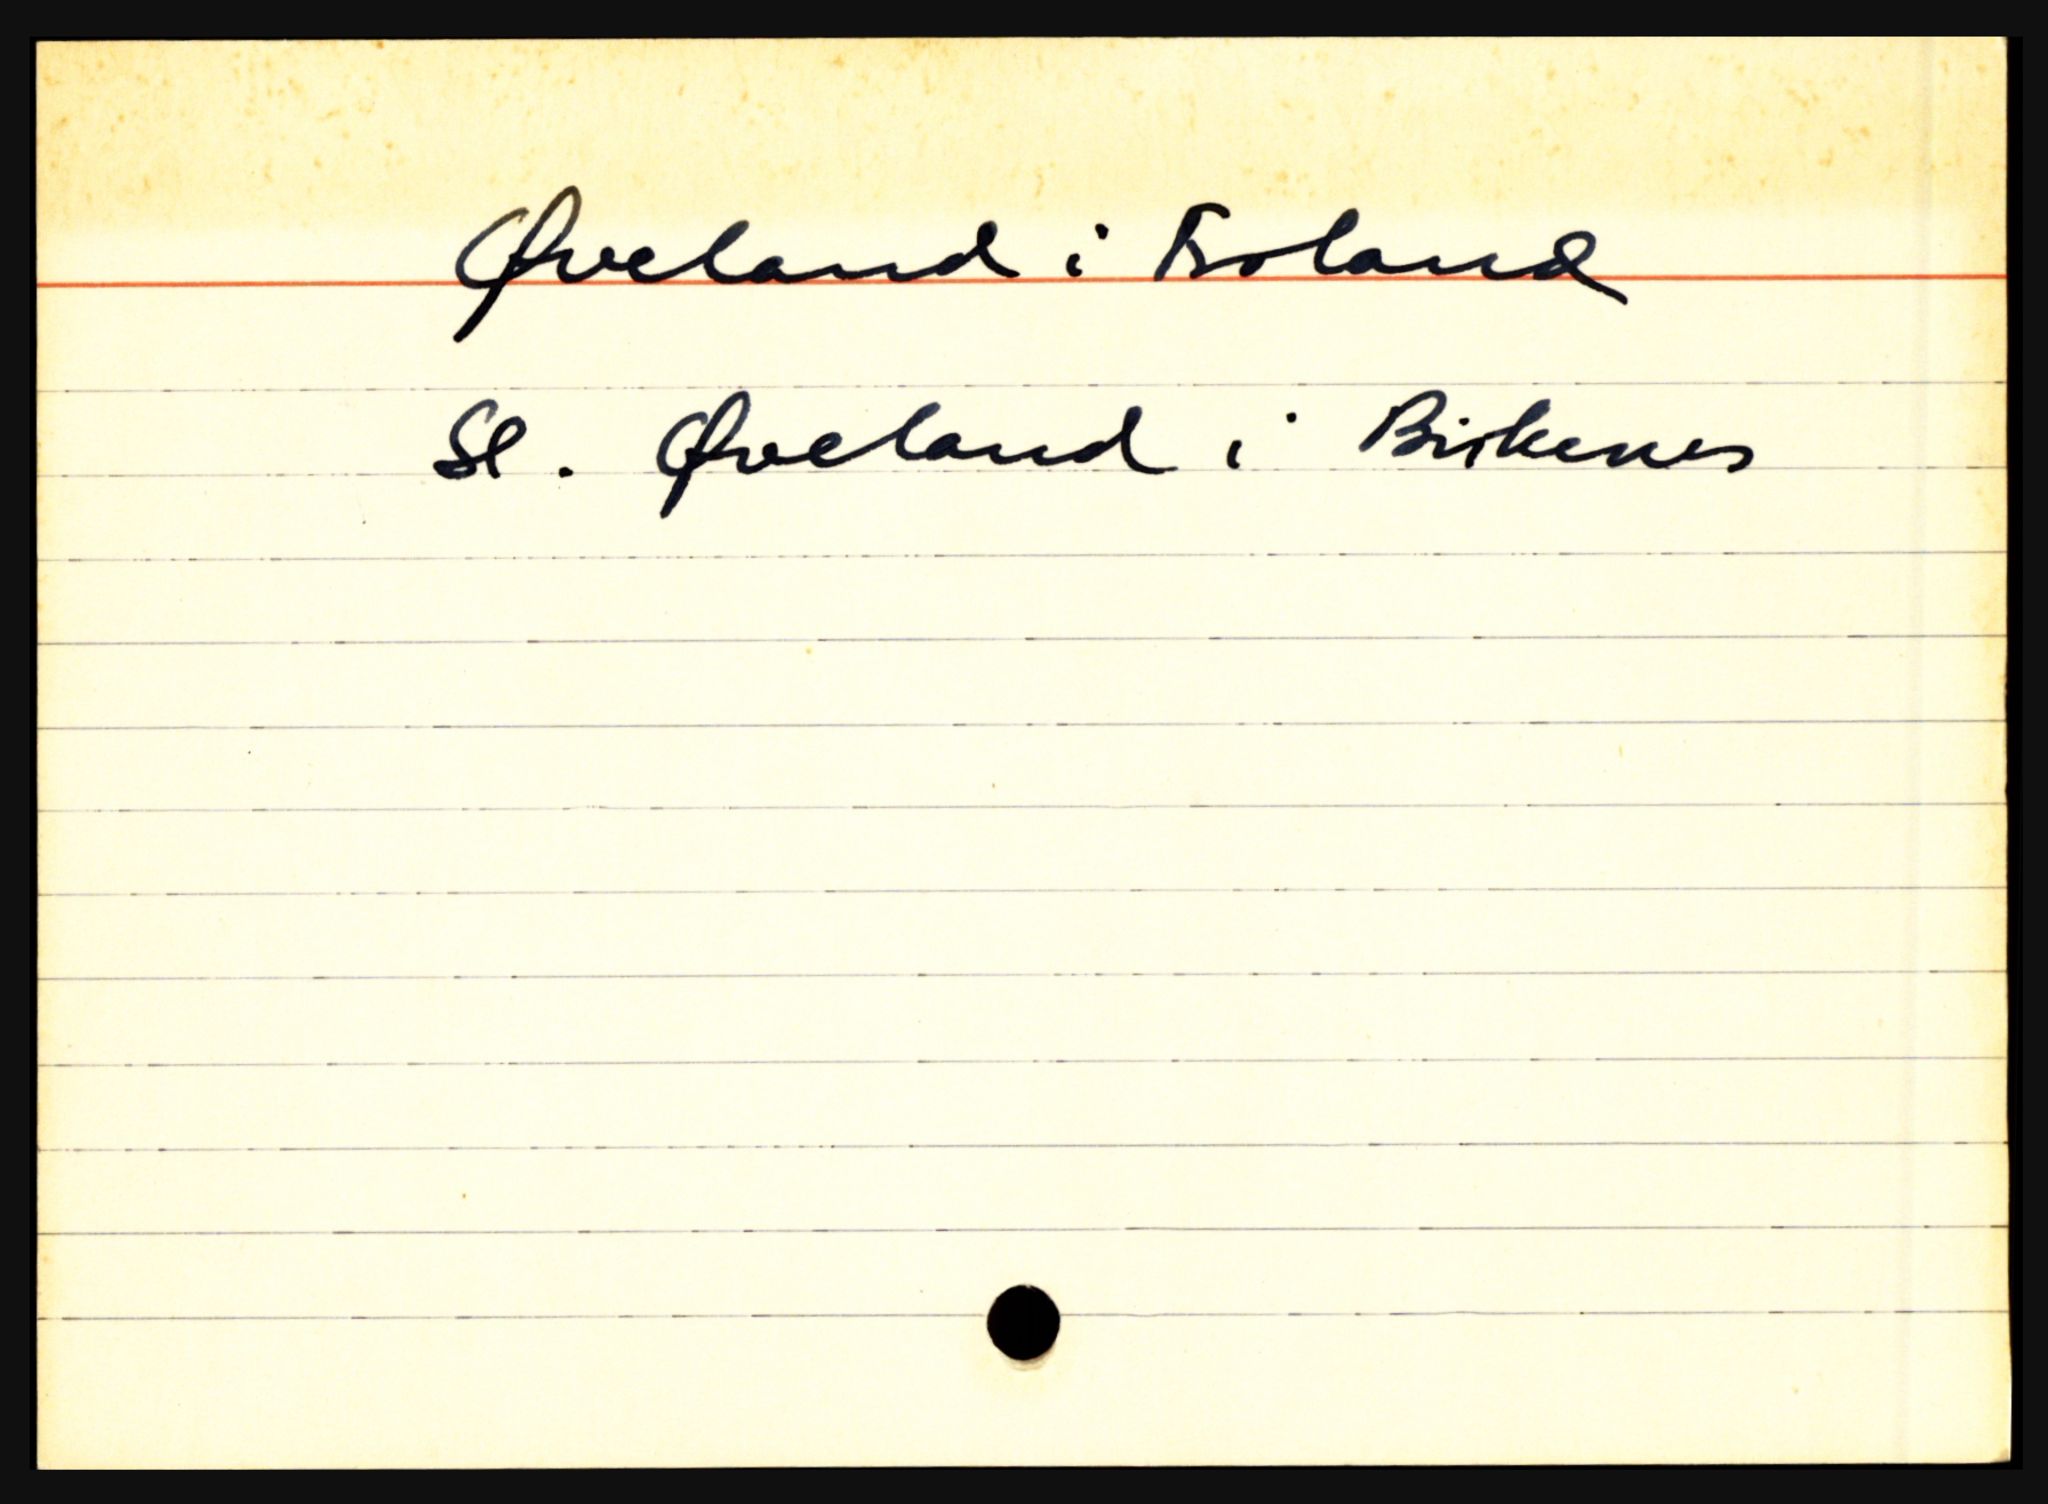 Øveland i Froland
Se. Øveland i Birkenes